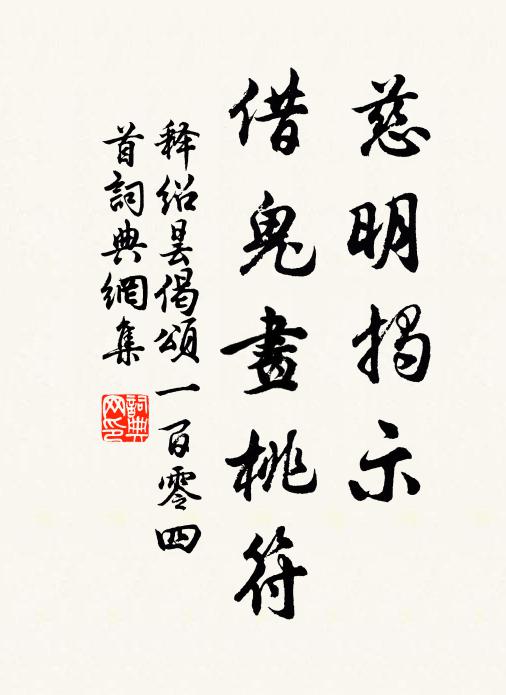 慈明揭示
借鬼畫桃符
释绍昙偈頌一百零四
首詞典網集
詞典网印